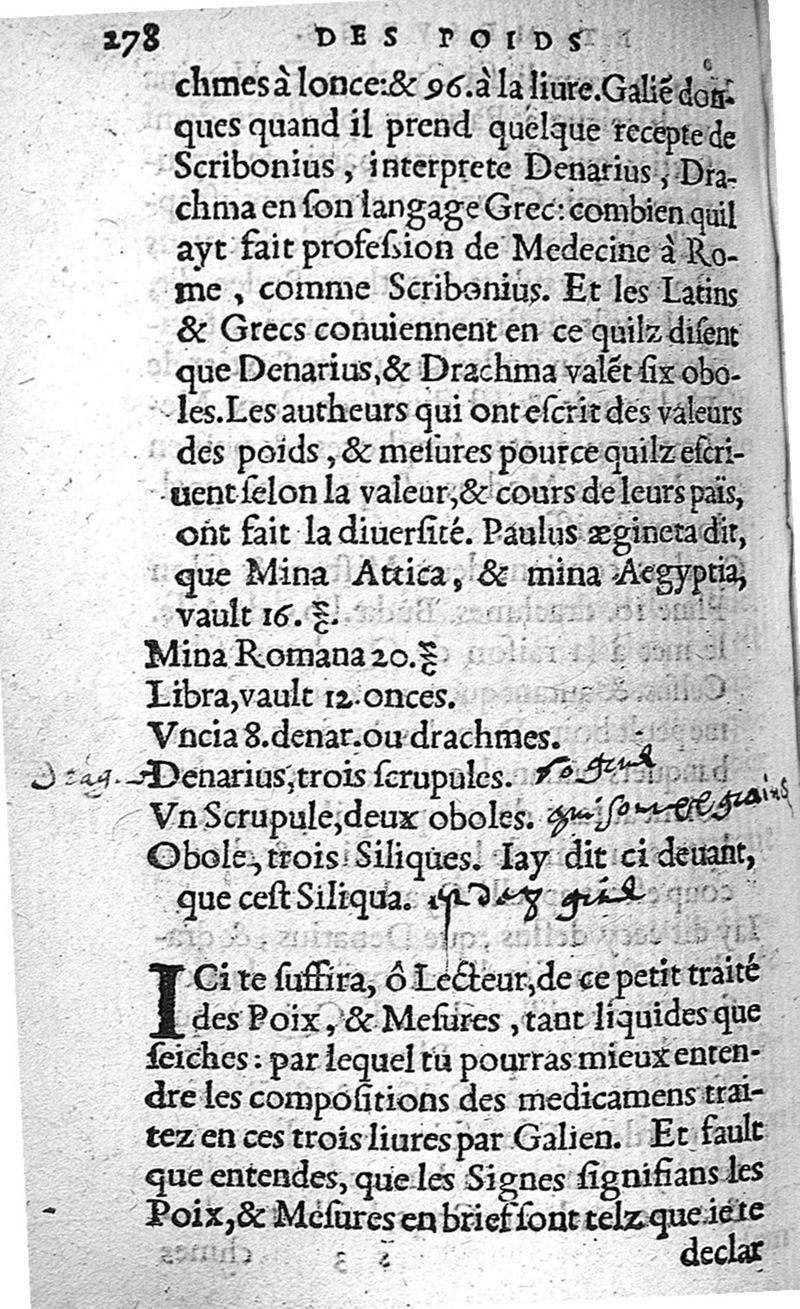 278 DES POIDS
chmes à lonce:& 96. à la liure. Galiẽ don-
ques quand il prend quelque recepte de
Scribonius, interprete Denarius, Dra-
chma en ſon langage Grec: combien quil
ayt fait profeſsion de Medecine à Ro-
me, comme Scribonius. Et les Latins
& Grecs conuiennent en ce quilz diſent
que Denarius,& Drachma valẽt ſix obo-
les. Les autheurs qui ont eſcrit des valeurs
des poids, & meſures pource quilz eſcri-
uent ſelon la valeur,& cours de leurs païs,
ont fait la diuerſité. Paulus ægineta dit,
que Mina Attica, & mina Aegyptia,
vault 16. ℥.
Mina Romana 20. ℥
Libra, vault 12. onces.
Vncia 8. denar. ou drachmes.
Denarius, trois ſcrupules.
Vn Scrupule, deux oboles.
Obole, trois Siliques. Iay dit ci deuant,
que ceſt Siliqua.
ICi te ſuffira, ô Lecteur, de ce petit traité
des Poix, & Meſures, tant liquides que
ſeiches: par lequel tu pourras mieux enten-
dre les compoſitions des medicamens trai-
tez en ces trois liures par Galien. Et fault
que entendes, que les Signes ſignifians les
Poix,& Meſures en brief ſont telz que ie te
declar